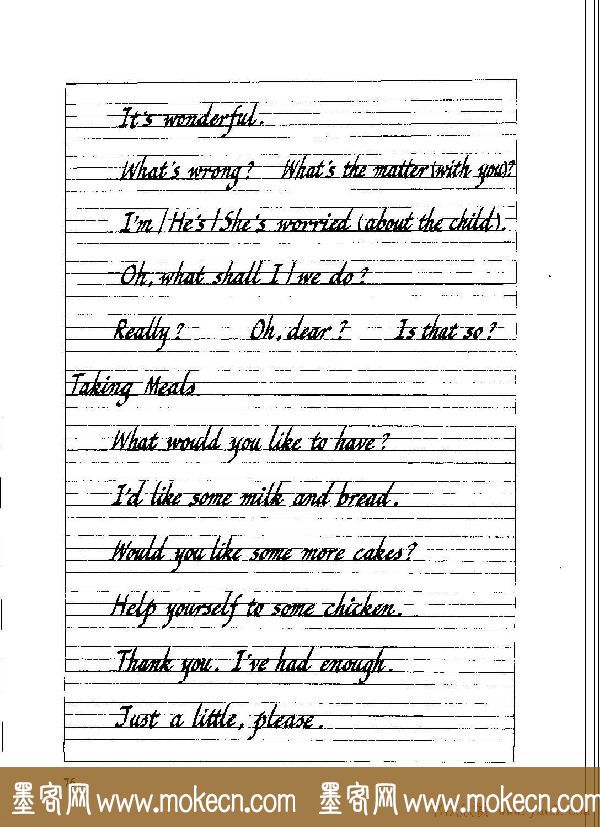 It's wonderful.
What's wrong? What's the matter (with you)?
I'm / He's / She's worried (about the child).
Oh, what shall I / we do?
Really? Oh, dear? Is that so?
Taking Meals
What would you like to have?
I'd like some milk and bread.
Would you like some more cakes?
Help yourself to some chicken.
Thank you. I've had enough.
Just a little, please.
76
墨客网 www.mokecn.com 墨客网 www.mokecn.com